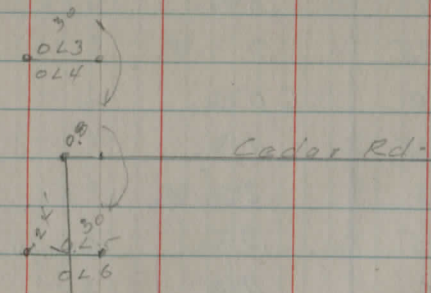 3°
OL3
OL4
Cedar Rd.
3°
OL5
OL6